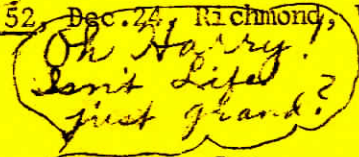 52, Dec.24, Richmond,
Oh Harry!
Isn't Life
just grand?